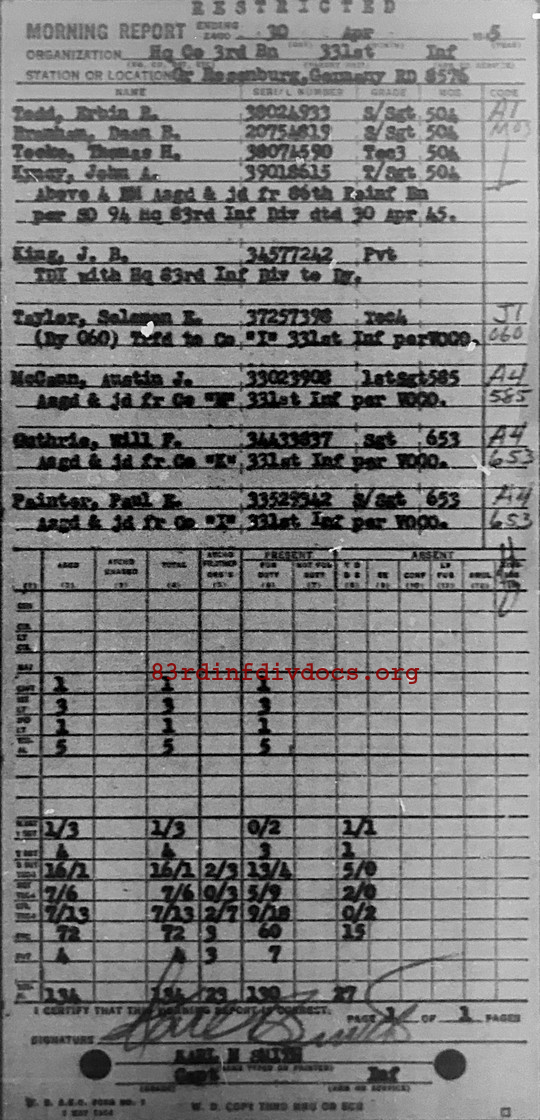 RESTRICTED
MORNING REPORT ENDING 2400 30 Apr 1945
ORGANIZATION Hq Co 3rd Bn 331st Inf
STATION OR LOCATION Gr Rosenburg, Germany RD 8576
NAME SERIAL NUMBER GRADE MOS CODE
Todd, Erbin R. 38024933 S/Sgt 504 A1
Branham, Dean R. 20754819 S/Sgt 504
Teeke, Thomas H. 38074590 Tec3 504
Krncy, John A. 39018615 T/Sgt 504
Above 4 EM Asgd & jd fr 86th Reinf Bn
per SO 94 Hq 83rd Inf Div dtd 30 Apr 45.
King, J. B. 34577242 Pvt
TDY with Hq 83rd Inf Div to Dy.
Taylor, Solomon E. 37257398 Tec4 J1
(Dy 060) Trfd to Co "I" 331st Inf per VOCO. 060
McCann, Austin J. 33023908 1stSgt 585 A4
Asgd & jd fr Co "M" 331st Inf per VOCO. 585
Guthrie, Will F. 34433837 Sgt 653 A4
Asgd & jd fr Co "K" 331st Inf per VOCO. 653
Painter, Paul E. 33529342 S/Sgt 653 A4
Asgd & jd fr Co "I" 331st Inf per VOCO. 653
PRESENT ABSENT
ASGD ATCHD UNASGD TOTAL FOR DUTY NOT FOR DUTY SK CONF
83rdinfdivdocs.org
1 1 1
3 3 3
1 1 1
5 5 5
1/3 1/3 0/2 1/1
4 4 3 1
16/1 16/1 2/3 13/4 5/0
7/6 7/6 0/3 5/9 2/0
7/13 7/13 2/7 9/18 0/2
72 72 3 60 15
4 4 3 7
134 134 23 130 27
I CERTIFY THAT THIS MORNING REPORT IS CORRECT. PAGE 1 OF 1 PAGES
SIGNATURE Karl M Smith
KARL M SMITH
Capt Inf
W. D. COPY THRU MRU OR SCU